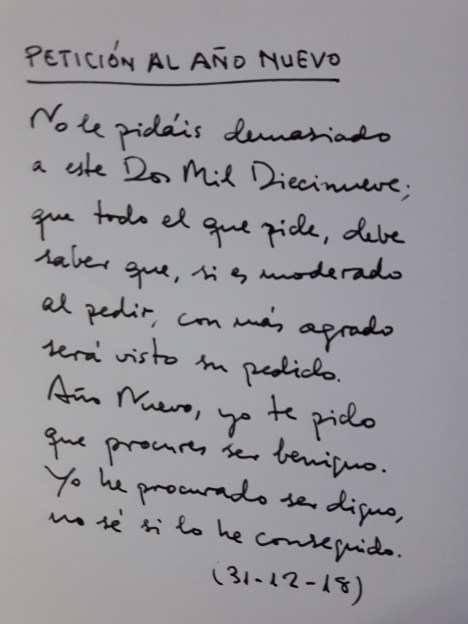 PETICIÓN AL AÑO NUEVO
No le pidáis demasiado
a este Dos Mil Diecinueve;
que todo el que pide, debe
saber que, si es moderado
al pedir, con más agrado
será visto su pedido.
Año Nuevo, yo te pido
que procures ser benigno.
Yo he procurado ser digno,
no sé si lo he conseguido.
(31-12-18)